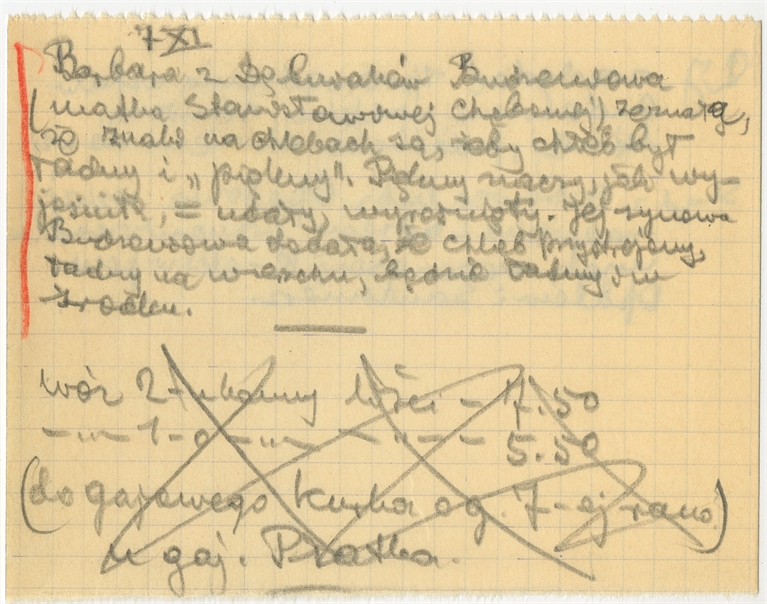 7 XI
Barbara z Dąbrowskich Budzeniowa
(matka Stanisławowej Chębosiej) zeznała,
że znaki na chlebach są, żeby chleb był
ładny i „piękny”. Piękny znaczy, jak wy-
jaśniła, = udały, wyrośnięty. Jej synowa
dodała, że chleb przystrojony,
ładny na wierzchu, będzie ładny i w
środku.
wóz 2-konny liści – 17.50
–„– 1-o –„– –„– – 5.50
(do gajowego Kurka o g. 7-ej rano)
u gaj. Pratka.